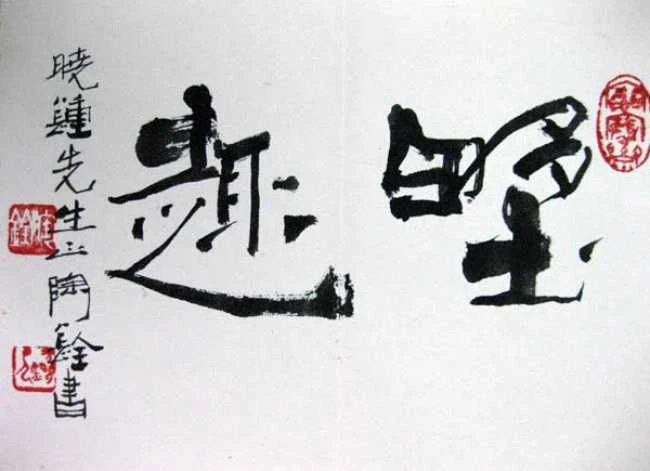 野趣
曉鍾先生正陶銓書